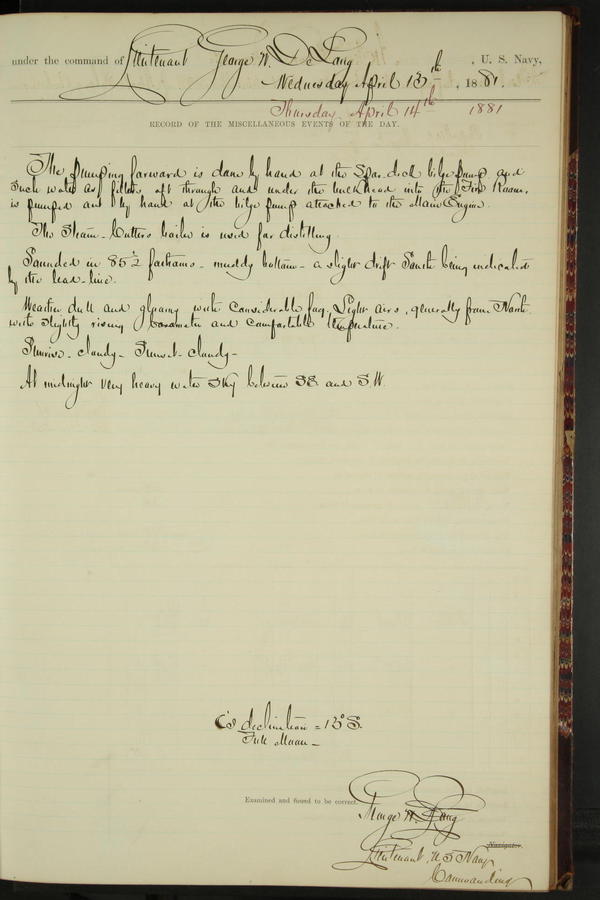 under the command of Lieutenant George W. De Long, U. S. Navy,
Wednesday April 13th, 1881.
Thursday April 14th 1881
RECORD OF THE MISCELLANEOUS EVENTS OF THE DAY.
The pumping forward is done by hand at the Spar-deck bilge pump and
such water as filters aft through and under the bulkhead into the Fire Room,
is pumped out by hand at the bilge pump attached to the Main Engine.
The Steam-Cutters boiler is used for distilling.
Sounded in 85½ fathoms - muddy bottom - a slight drift South being indicated
by the lead-line.
Weather dull and gloomy with considerable fog, Light airs, generally from North
with slightly rising barometer and comfortable temperature.
Sunrise - cloudy - Sunset - cloudy -
At midnight very heavy water sky between SE and S.W.
☾'s declination = 13° S.
Full Moon -
Examined and found to be correct.
George W. De Long
Navigator.
Lieutenant, U S Navy
Commanding